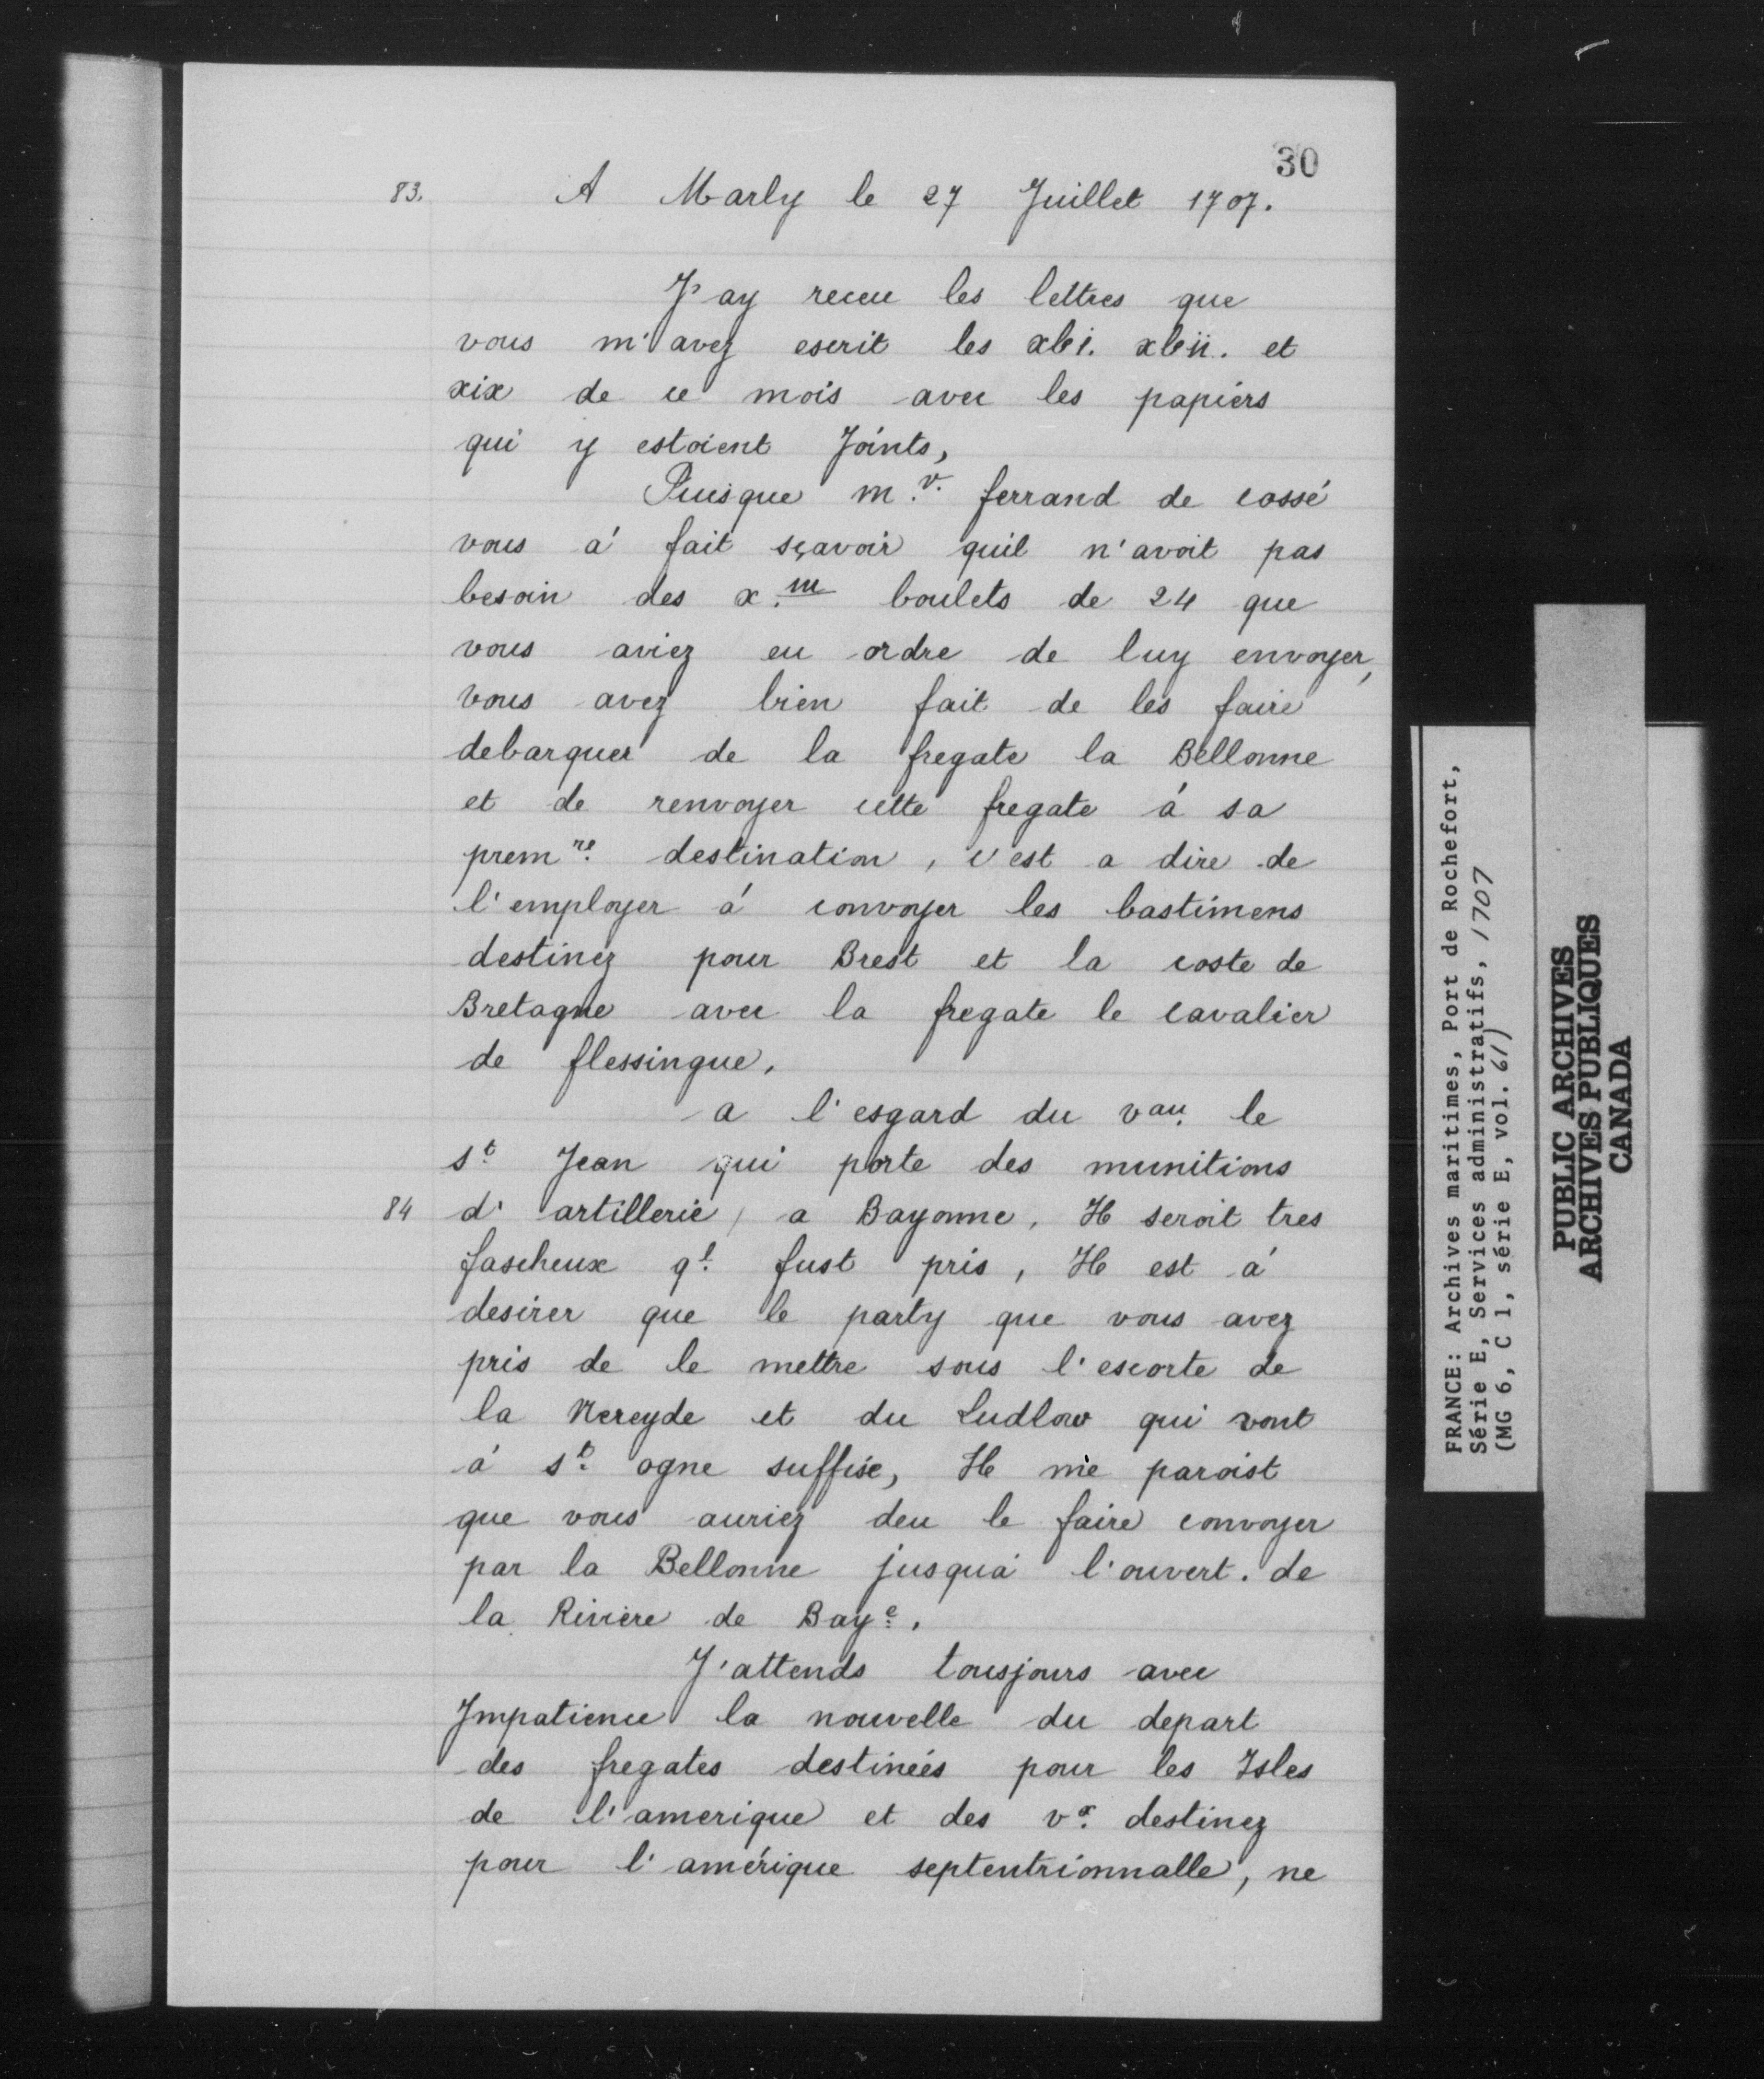 30
83. A Marly le 27 Juillet 1707.
J'ay receu les lettres que
vous m'avez escrit les xbi. xbii. et
xix de ce mois avec les papiers
qui y estoient Joints,
Puisque m.r ferrand de cossé
vous á fait sçavoir quil n'avoit pas
besoin des x.m boulets de 24 que
vous aviez eu ordre de luy envoyer,
vous avez bien fait de les faire
debarquer de la fregate la Bellonne
et de renvoyer cette fregate á sa
prem.re destination, c'est a dire de
l'employer á convoyer les bastimens
destinez pour Brest et la coste de
Bretagne avec la fregate le cavalier
de flessingue.
a l'esgard du vau. le
st. Jean qui porte des munitions
84 d'artillerie, a Bayonne, Il seroit tres
fascheux ql. fust pris, Il est á
desirer que le party que vous avez
pris de le mettre sous l'escorte de
la Nereyde et du Ludlow qui vont
á st. ogne suffise, Il me paroist
que vous auriez deu le faire convoyer
par la Bellonne jusquá l'ouvert. de
la Riviere de Baye.
J'attends tousjours avec
Impatience la nouvelle du depart
des fregates destinées pour les Isles
de l'amerique et des vx. destinez
pour l'amérique septentrionnalle, ne
FRANCE: Archives maritimes, Port de Rochefort,
Série E, Services administratifs, 1707
(MG 6, C 1, série E, vol. 61)
PUBLIC ARCHIVES
ARCHIVES PUBLIQUES
CANADA